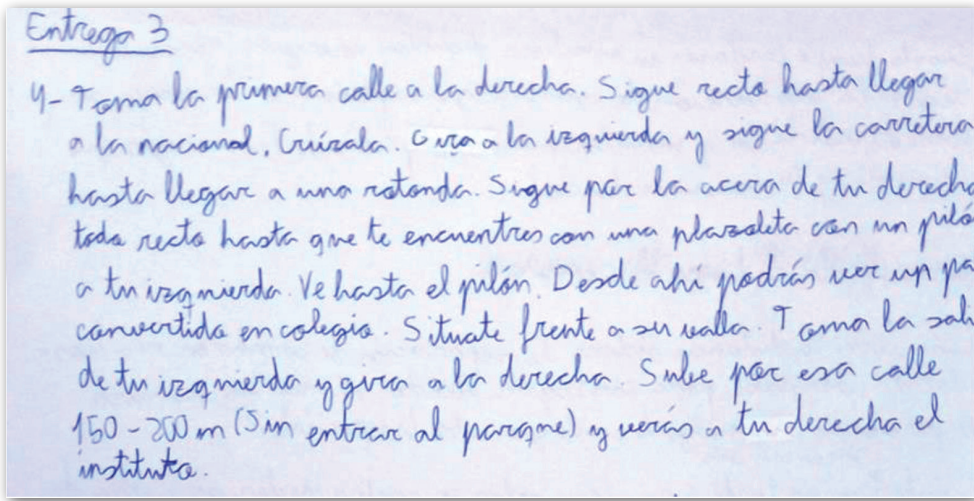 Entrega 3
4- Toma la primera calle a la derecha. Sigue recto hasta llegar
a la nacional. Crúzala. Gira a la izquierda y sigue la carretera
hasta llegar a una rotonda. Sigue por la acera de tu derecha
todo recto hasta que te encuentres con una plazoleta con un piló
a tu izquierda. Ve hasta el pilón. Desde ahí podrás ver un pa
convertido en colegio. Situate frente a su valla. Toma la sali
de tu izquierda y gira a la derecha. Sube por esa calle
150-200 m (Sin entrar al parque) y verás a tu derecha el
instituto.